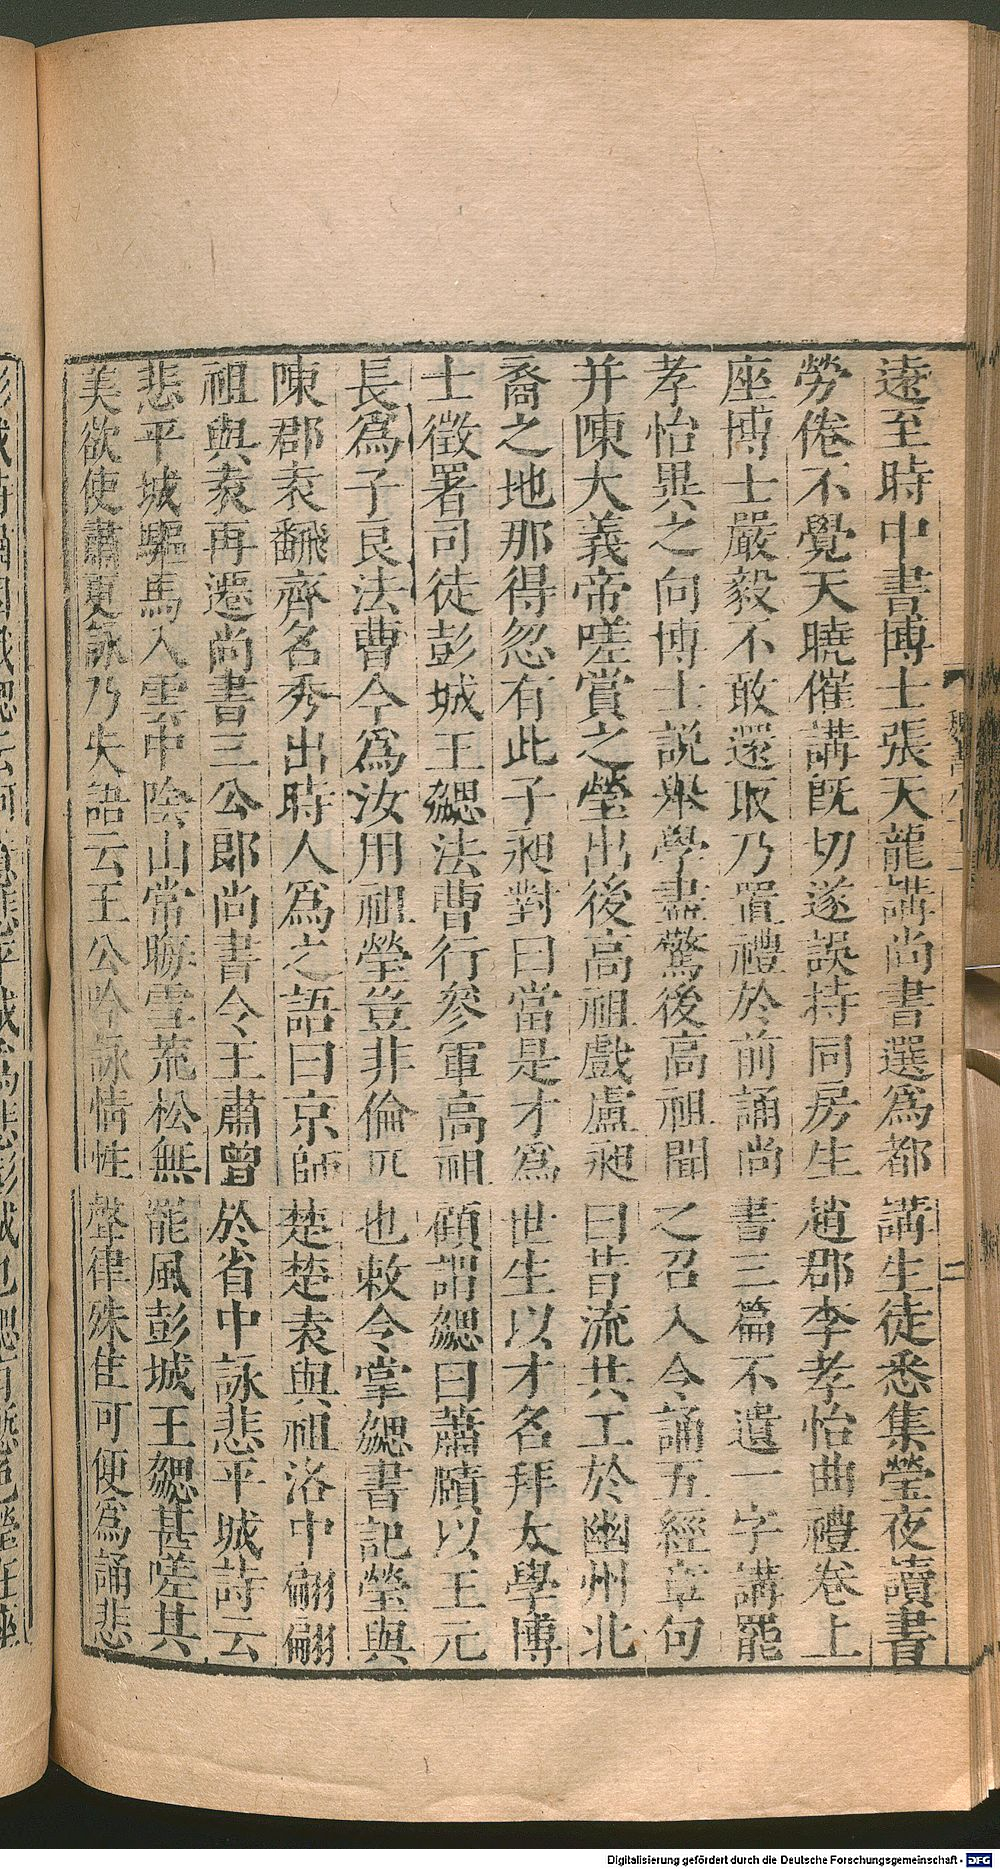 遠至時中書博士張天龍講尚書選爲都講生徒悉集瑩夜讀書
勞倦不覺天曉催講旣切遂誤持同房生趙郡李孝怡曲禮卷上
座博士嚴毅不敢還取乃置禮於前誦尚書三篇不遺一字講罷
孝怡異之向博士說舉學盡驚後高祖聞之召入令誦五經章句
并陳大義帝嗟賞之瑩出後高祖戲盧昶曰昔流共工於幽州北
裔之地那得忽有此子昶對曰當是才爲世生以才名拜太學博
士徵署司徒彭城王勰法曹行參軍高祖顧謂勰曰蕭賾以王元
長爲子良法曹今爲汝用祖瑩豈非倫匹也敕令掌勰書記瑩與
陳郡袁翻齊名秀出時人爲之語曰京師楚楚袁與祖洛中翩翩
祖與袁再遷尚書三公郎尚書令王肅曾於省中詠悲平城詩云
悲平城驅馬入雲中陰山常晦雪荒松無罷風彭城王勰甚嗟其
美欲使肅更詠乃失語云王公吟詠情性聲律殊佳可便爲誦悲
二
Digitalisierung gefördert durch die Deutsche Forschungsgemeinschaft - DFG